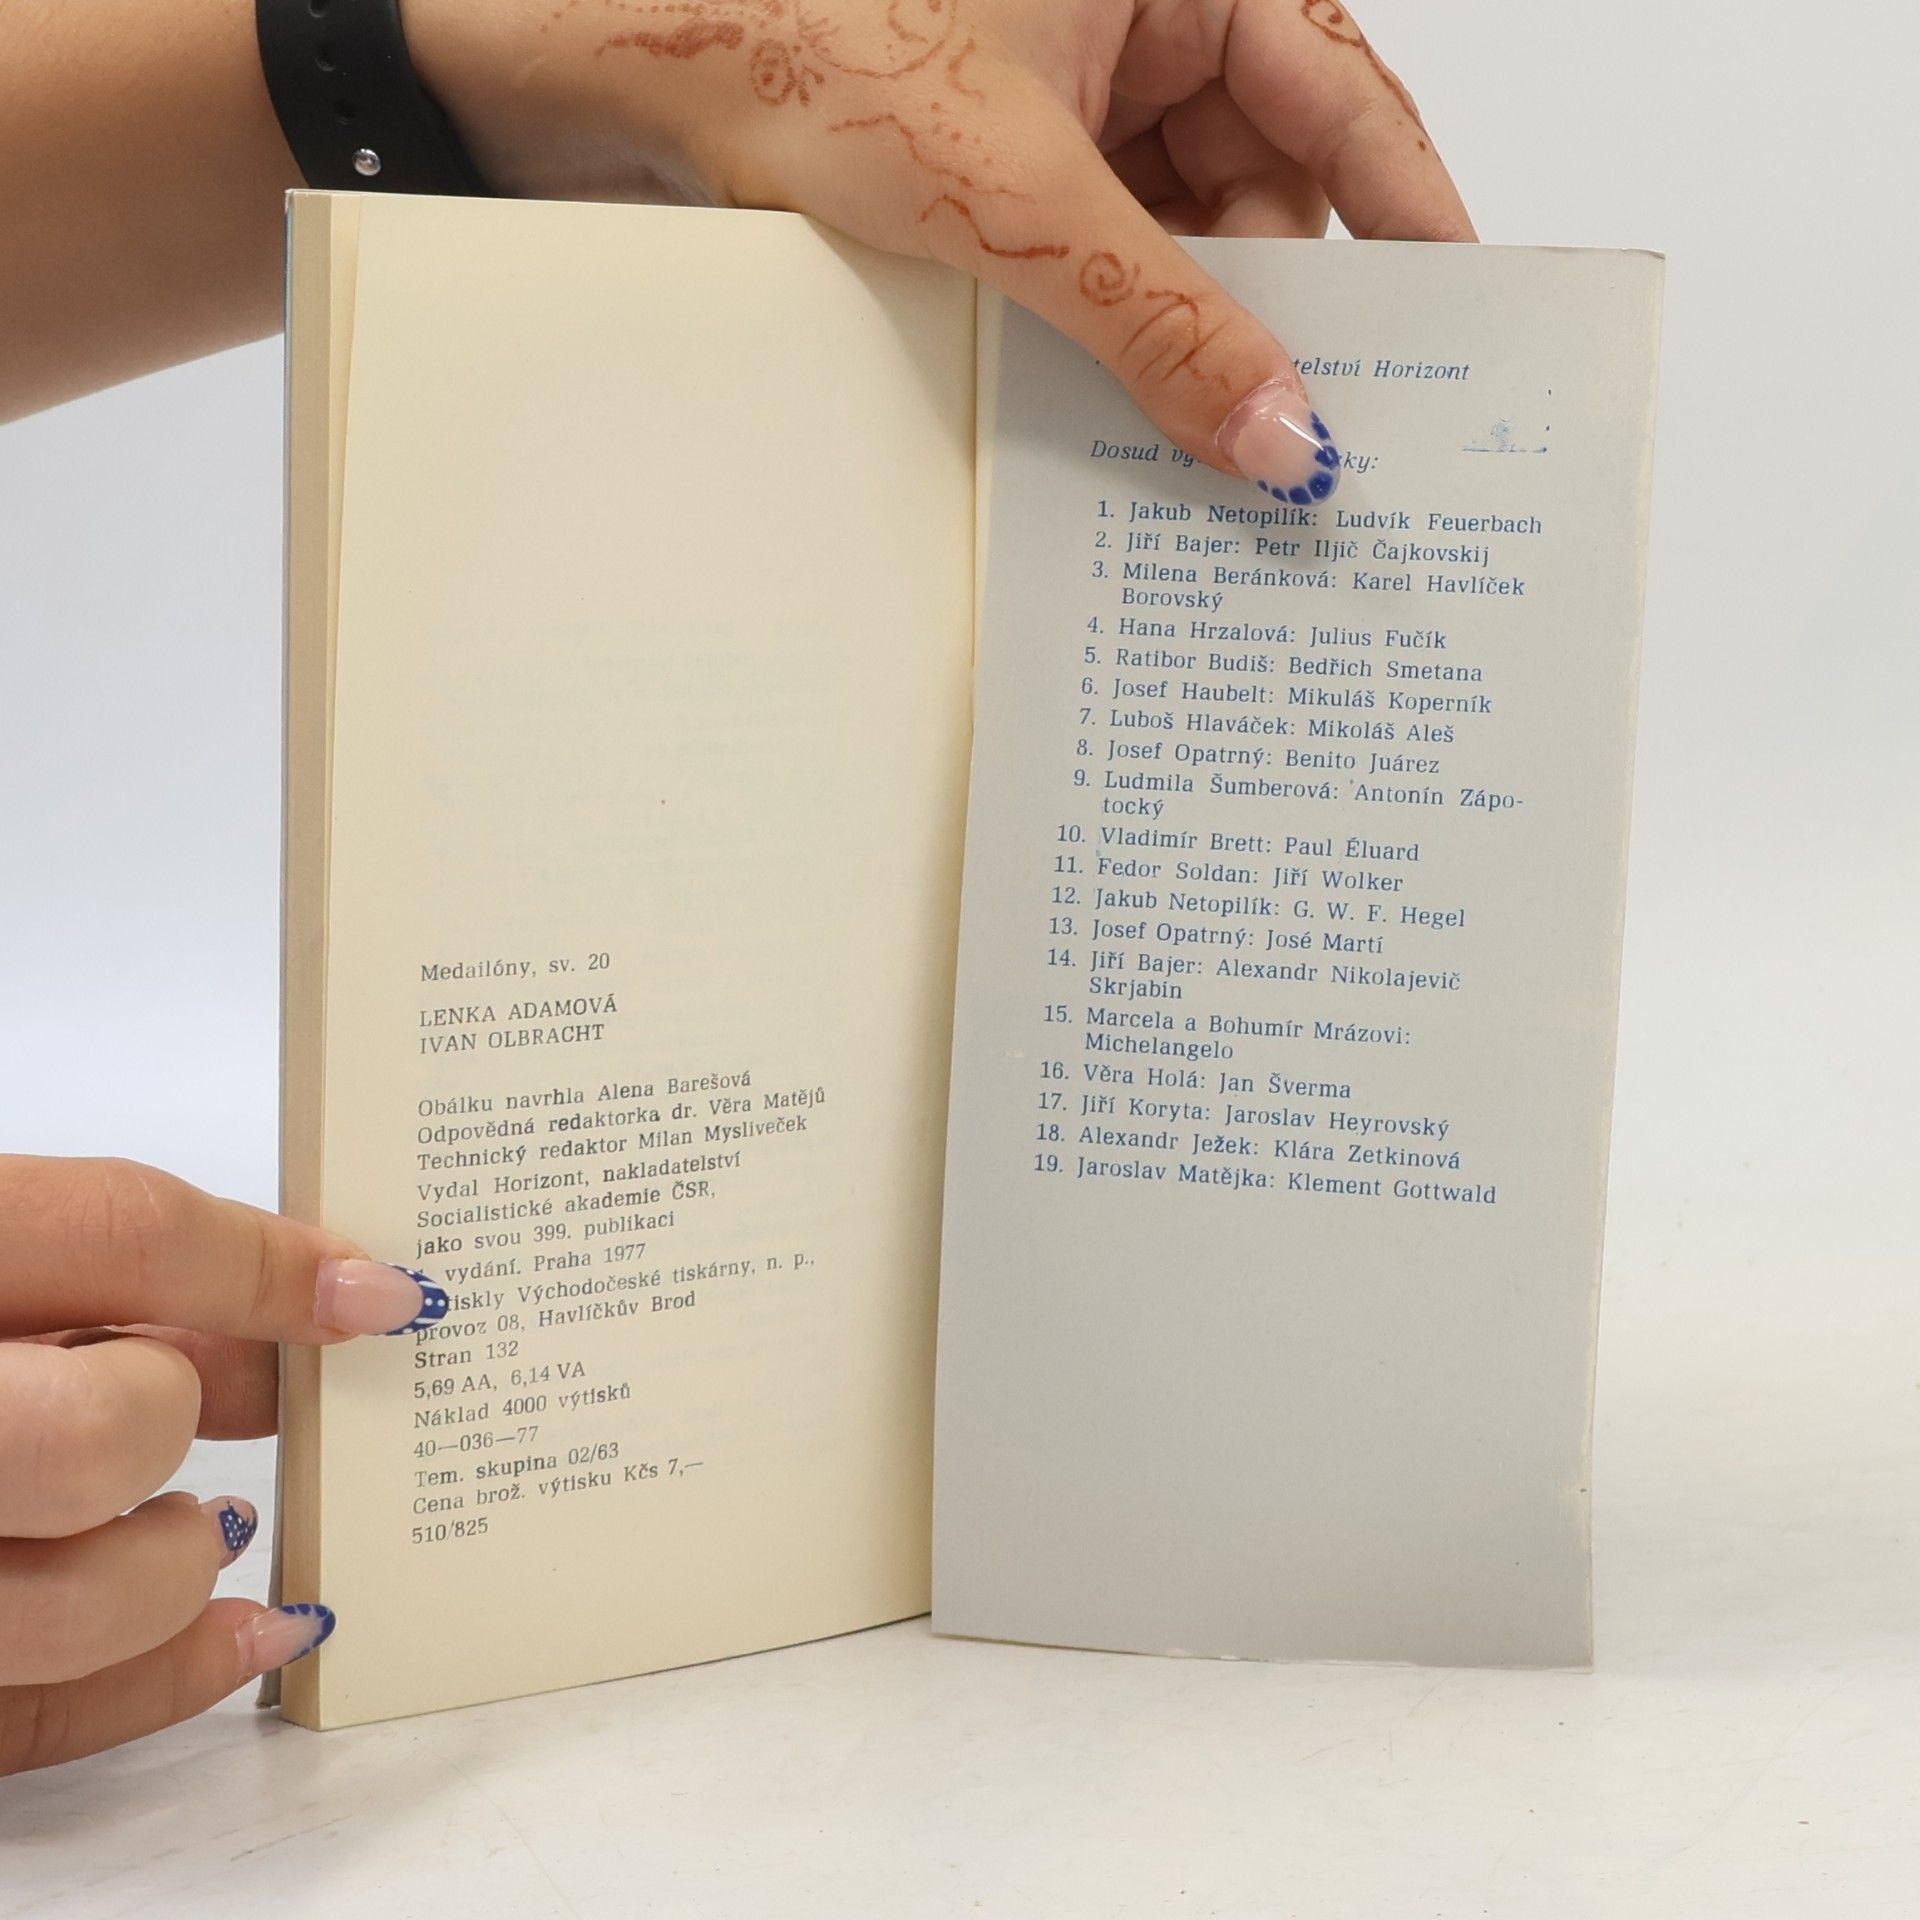 Medailóny, sv. 20
LENKA ADAMOVÁ
IVAN OLBRACHT
Obálku navrhla Alena Barešová
Odpovědná redaktorka dr. Věra Matějů
Technický redaktor Milan Mysliveček
Vydal Horizont, nakladatelství
Socialistické akademie ČSR,
jako svou 399. publikaci
vydání. Praha 1977
Východočeské tiskárny, n. p.,
provoz 08, Havlíčkův Brod
Stran 132
5,69 AA, 6,14 VA
Náklad 4000 výtisků
40—036—77
Tem. skupina 02/63
Cena brož. výtisku Kčs 7,—
510/825
Horizont
Dosud
1. Jakub Netopilík: Ludvík Feuerbach
2. Jiří Bajer: Petr Iljič Čajkovskij
3. Milena Beránková: Karel Havlíček
Borovský
4. Hana Hrzalová: Julius Fučík
5. Ratibor Budiš: Bedřich Smetana
6. Josef Haubelt: Mikuláš Koperník
7. Luboš Hlaváček: Mikoláš Aleš
8. Josef Opatrný: Benito Juárez
9. Ludmila Šumberová: Antonín Zápo-
tocký
10. Vladimír Brett: Paul Éluard
11. Fedor Soldan: Jiří Wolker
12. Jakub Netopilík: G. W. F. Hegel
13. Josef Opatrný: José Martí
14. Jiří Bajer: Alexandr Nikolajevič
Skrjabin
15. Marcela a Bohumír Mrázovi:
Michelangelo
16. Věra Holá: Jan Šverma
17. Jiří Koryta: Jaroslav Heyrovský
18. Alexandr Ježek: Klára Zetkinová
19. Jaroslav Matějka: Klement Gottwald